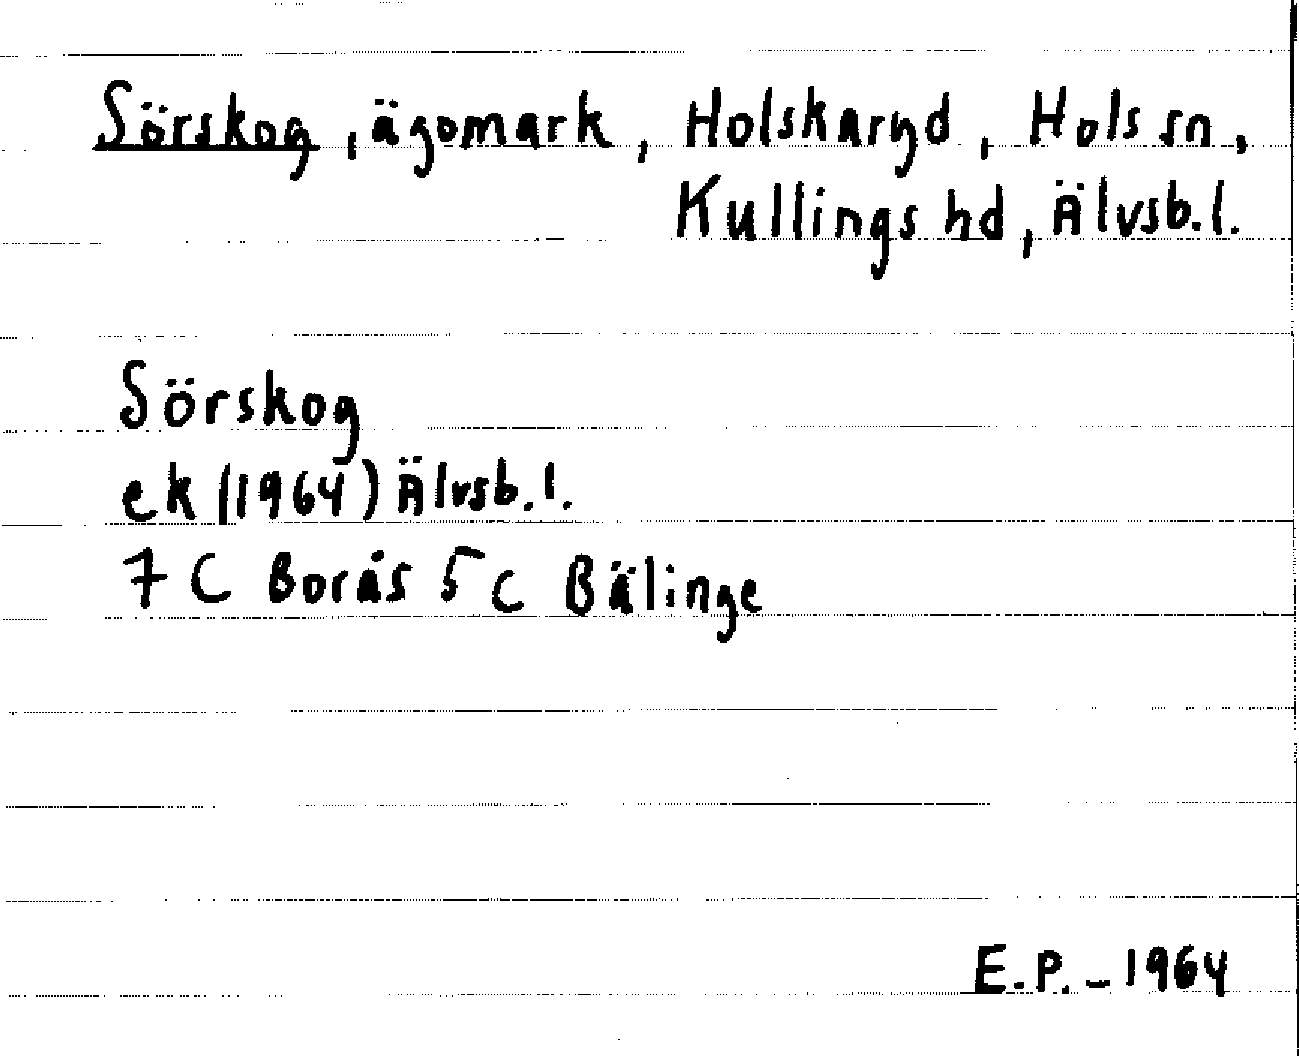 Sörskog, ägomark, Holskaryd, Hols sn,
Kullings hd, Älvsb.l.
Sörskog
ek (1964) Älvsb.l.
7 C Borås 5 c Bälinge
E.P. - 1964